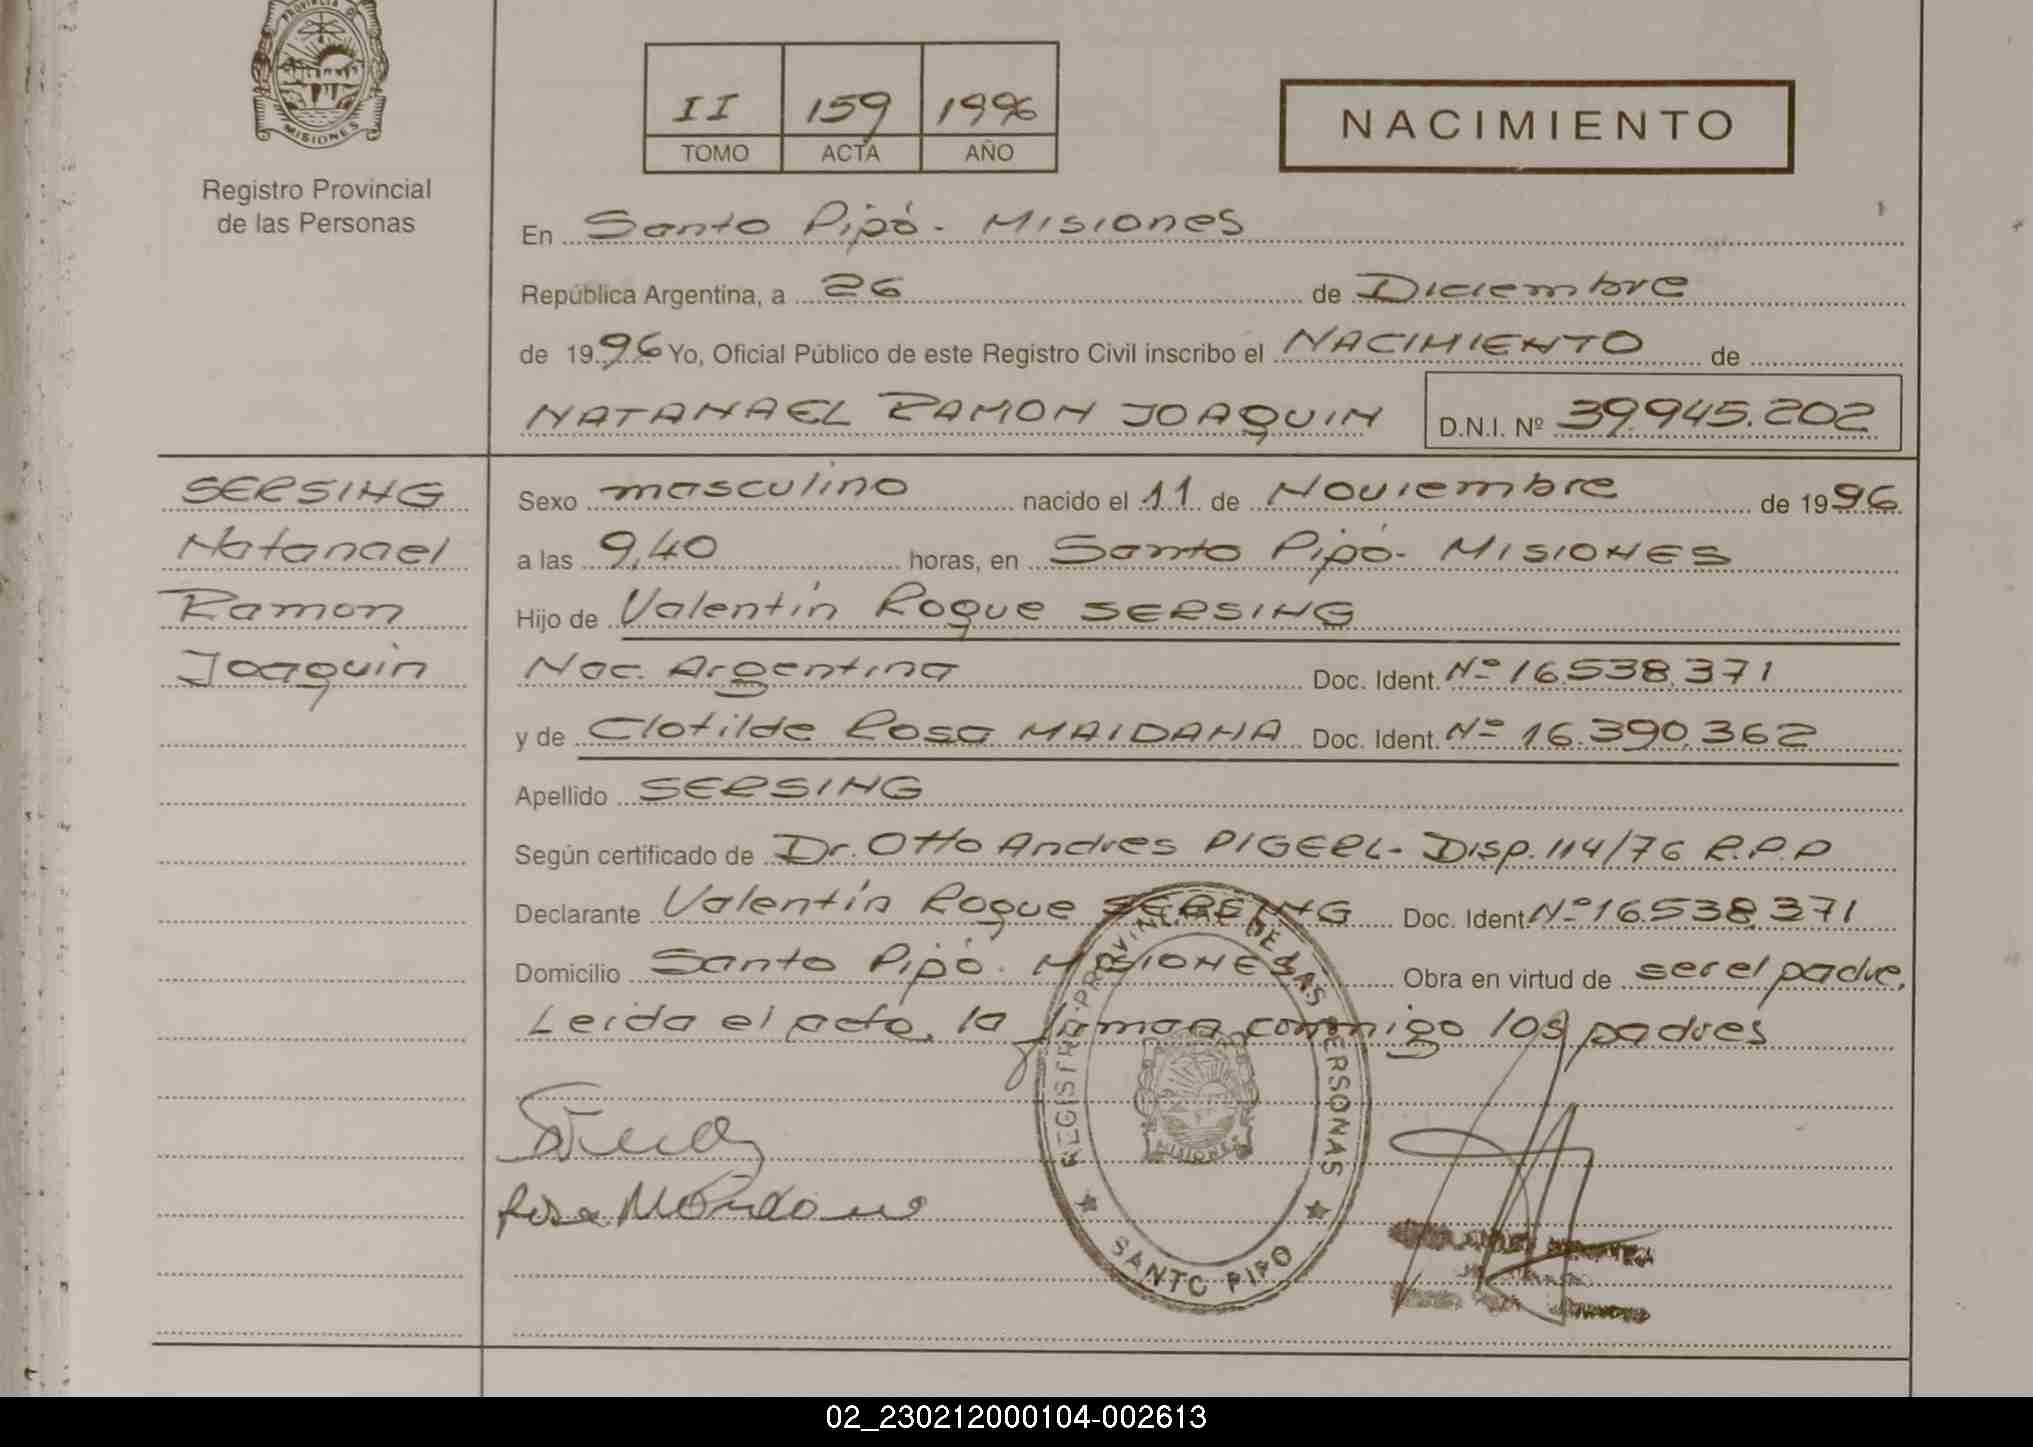 PROVINCIA D
MISIONES
Registro Provincial
de las Personas
II 159 1996
TOMO ACTA AÑO
NACIMIENTO
En Santo Pipó - Misiones
República Argentina, a 26 de Diciembre
de 1996 Yo, Oficial Público de este Registro Civil inscribo el NACIMIENTO de
NATANAEL RAMON JOAQUIN D.N.I. Nº 39.945.202
SERSING
Natanael
Ramon
Joaquin
Sexo masculino nacido el 11 de Noviembre de 1996
a las 9,40 horas, en Santo Pipó - MISIONES
Hijo de Valentín Roque SERSING
Nac. Argentina Doc. Ident. Nº 16.538.371
y de Clotilde Rosa MAIDANA Doc. Ident. Nº 16.390.362
Apellido SERSING
Según certificado de Dr. Otto Andres PIGERL - Disp. 114/76 R.P.P
Declarante Valentín Roque SERSING Doc. Ident. Nº 16.538.371
Domicilio Santo Pipó - MISIONES Obra en virtud de ser el padre.
Leida el acta, la firman conmigo los padres
REGISTRO PROVINCIAL DE LAS PERSONAS
MISIONES
SANTO PIPO
Rosa Maidana
02_230212000104-002613